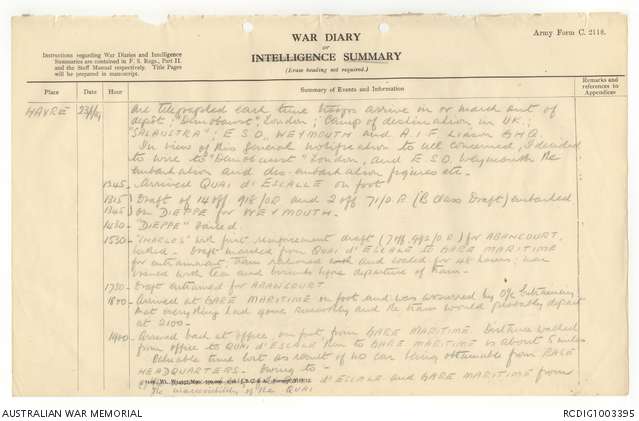 Army Form C. 2118.
WAR DIARY
or
INTELLIGENCE SUMMARY
(Erase heading not required.)
Instructions regarding War Diaries and Intelligence
Summaries are contained in F. S. Regs., Part II.
and the Staff Manual respectively. Title Pages
will be prepared in manuscript.
Place Date Hour Summary of Events and Information Remarks and
references to
Appendices
HAVRE are telegraphed each time troops arrive in or march out of
depôt, "Demobaust", London; Camp of destination in U.K.;
"SALAUSTRA"; E.S.O. WEYMOUTH and A.I.F. Liaison G.H.Q.
In view of this General notification to all concerned, I decided
to wire to "Demobaust" London, and E.S.O. Weymouth the
embarkation and dis-embarkation figures etc.
1245 Arrived QUAI d'ESCALE on foot
1315) Draft of 14 off 918/O.R and 2 off 71/O.R (B class Draft) embarked
1345) on DIEPPE for WEYMOUTH.
1430 "DIEPPE" sailed.
1530 "CHARLES" with first reinforcement draft for ABANCOURT,
Draft marched from QUAI d'ESCALE to GARE MARITIME
for entrainment. Train rationed and for 48 hours; was
issued with tea and biscuits before departure of train.
1730 Draft entrained for ABANCOURT
1800 Arrived at GARE MARITIME on foot and was assured by O/c Entraining
that everything had gone smoothly and the train would probably depart
at 2100.
1900 Arrived back at office on foot from GARE MARITIME. Distance walked
from office to QUAI d'ESCALE then to GARE MARITIME is about 5 miles
Valuable time lost as result of no car being obtainable from BASE
HEADQUARTERS. Owing to
d'ESCALE and GARE MARITIME from
the inaccessibility of the QUAI
AUSTRALIAN WAR MEMORIAL
RCDIG1003395